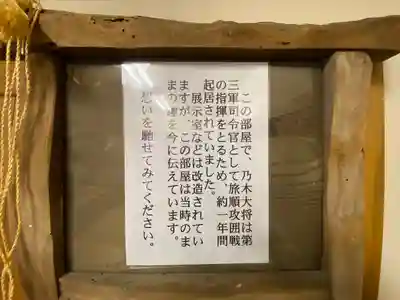 この部屋で、乃木大将は第
三軍司令官として旅順攻囲戦
の指揮をとるため、約一年間
起居されていました。
展示室などは改造されてい
ますが、この部屋は当時のま
まの を今に伝えています。
思いを馳せてみてください。